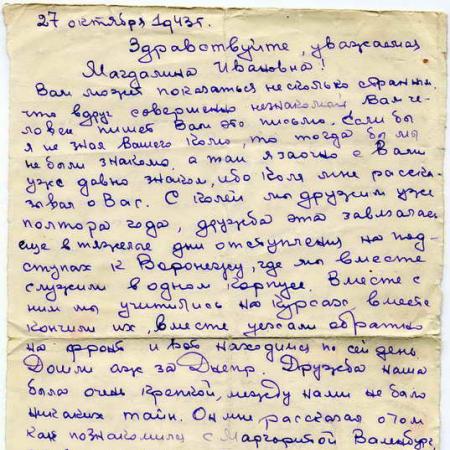 27 октября 1943 г.
Здравствуйте, уважаемая
Магдалина Ивановна!
Вам может показаться несколько странным,
что вдруг совершенно незнакомый Вам че-
ловек пишет Вам это письмо. Если бы
я не знал Вашего Колю, то тогда бы мы
не были знакомы, а так я заочно с Вами
уже давно знаком, ибо Коля мне расска-
зывал о Вас. С Колей мы дружим уже
полтора года, дружба эта завязалась
еще в тяжелые дни отступления на под-
ступах к Воронежу, где мы вместе
служили в одном корпусе. Вместе с
ним мы учились на курсах, вместе
кончили их, вместе уехали обратно
на фронт и всё находимся по сей день
Дошли аж за Днепр. Дружба наша
была очень крепкой, между нами не было
никаких тайн. Он мне рассказал о том
как познакомился с Маргаритой